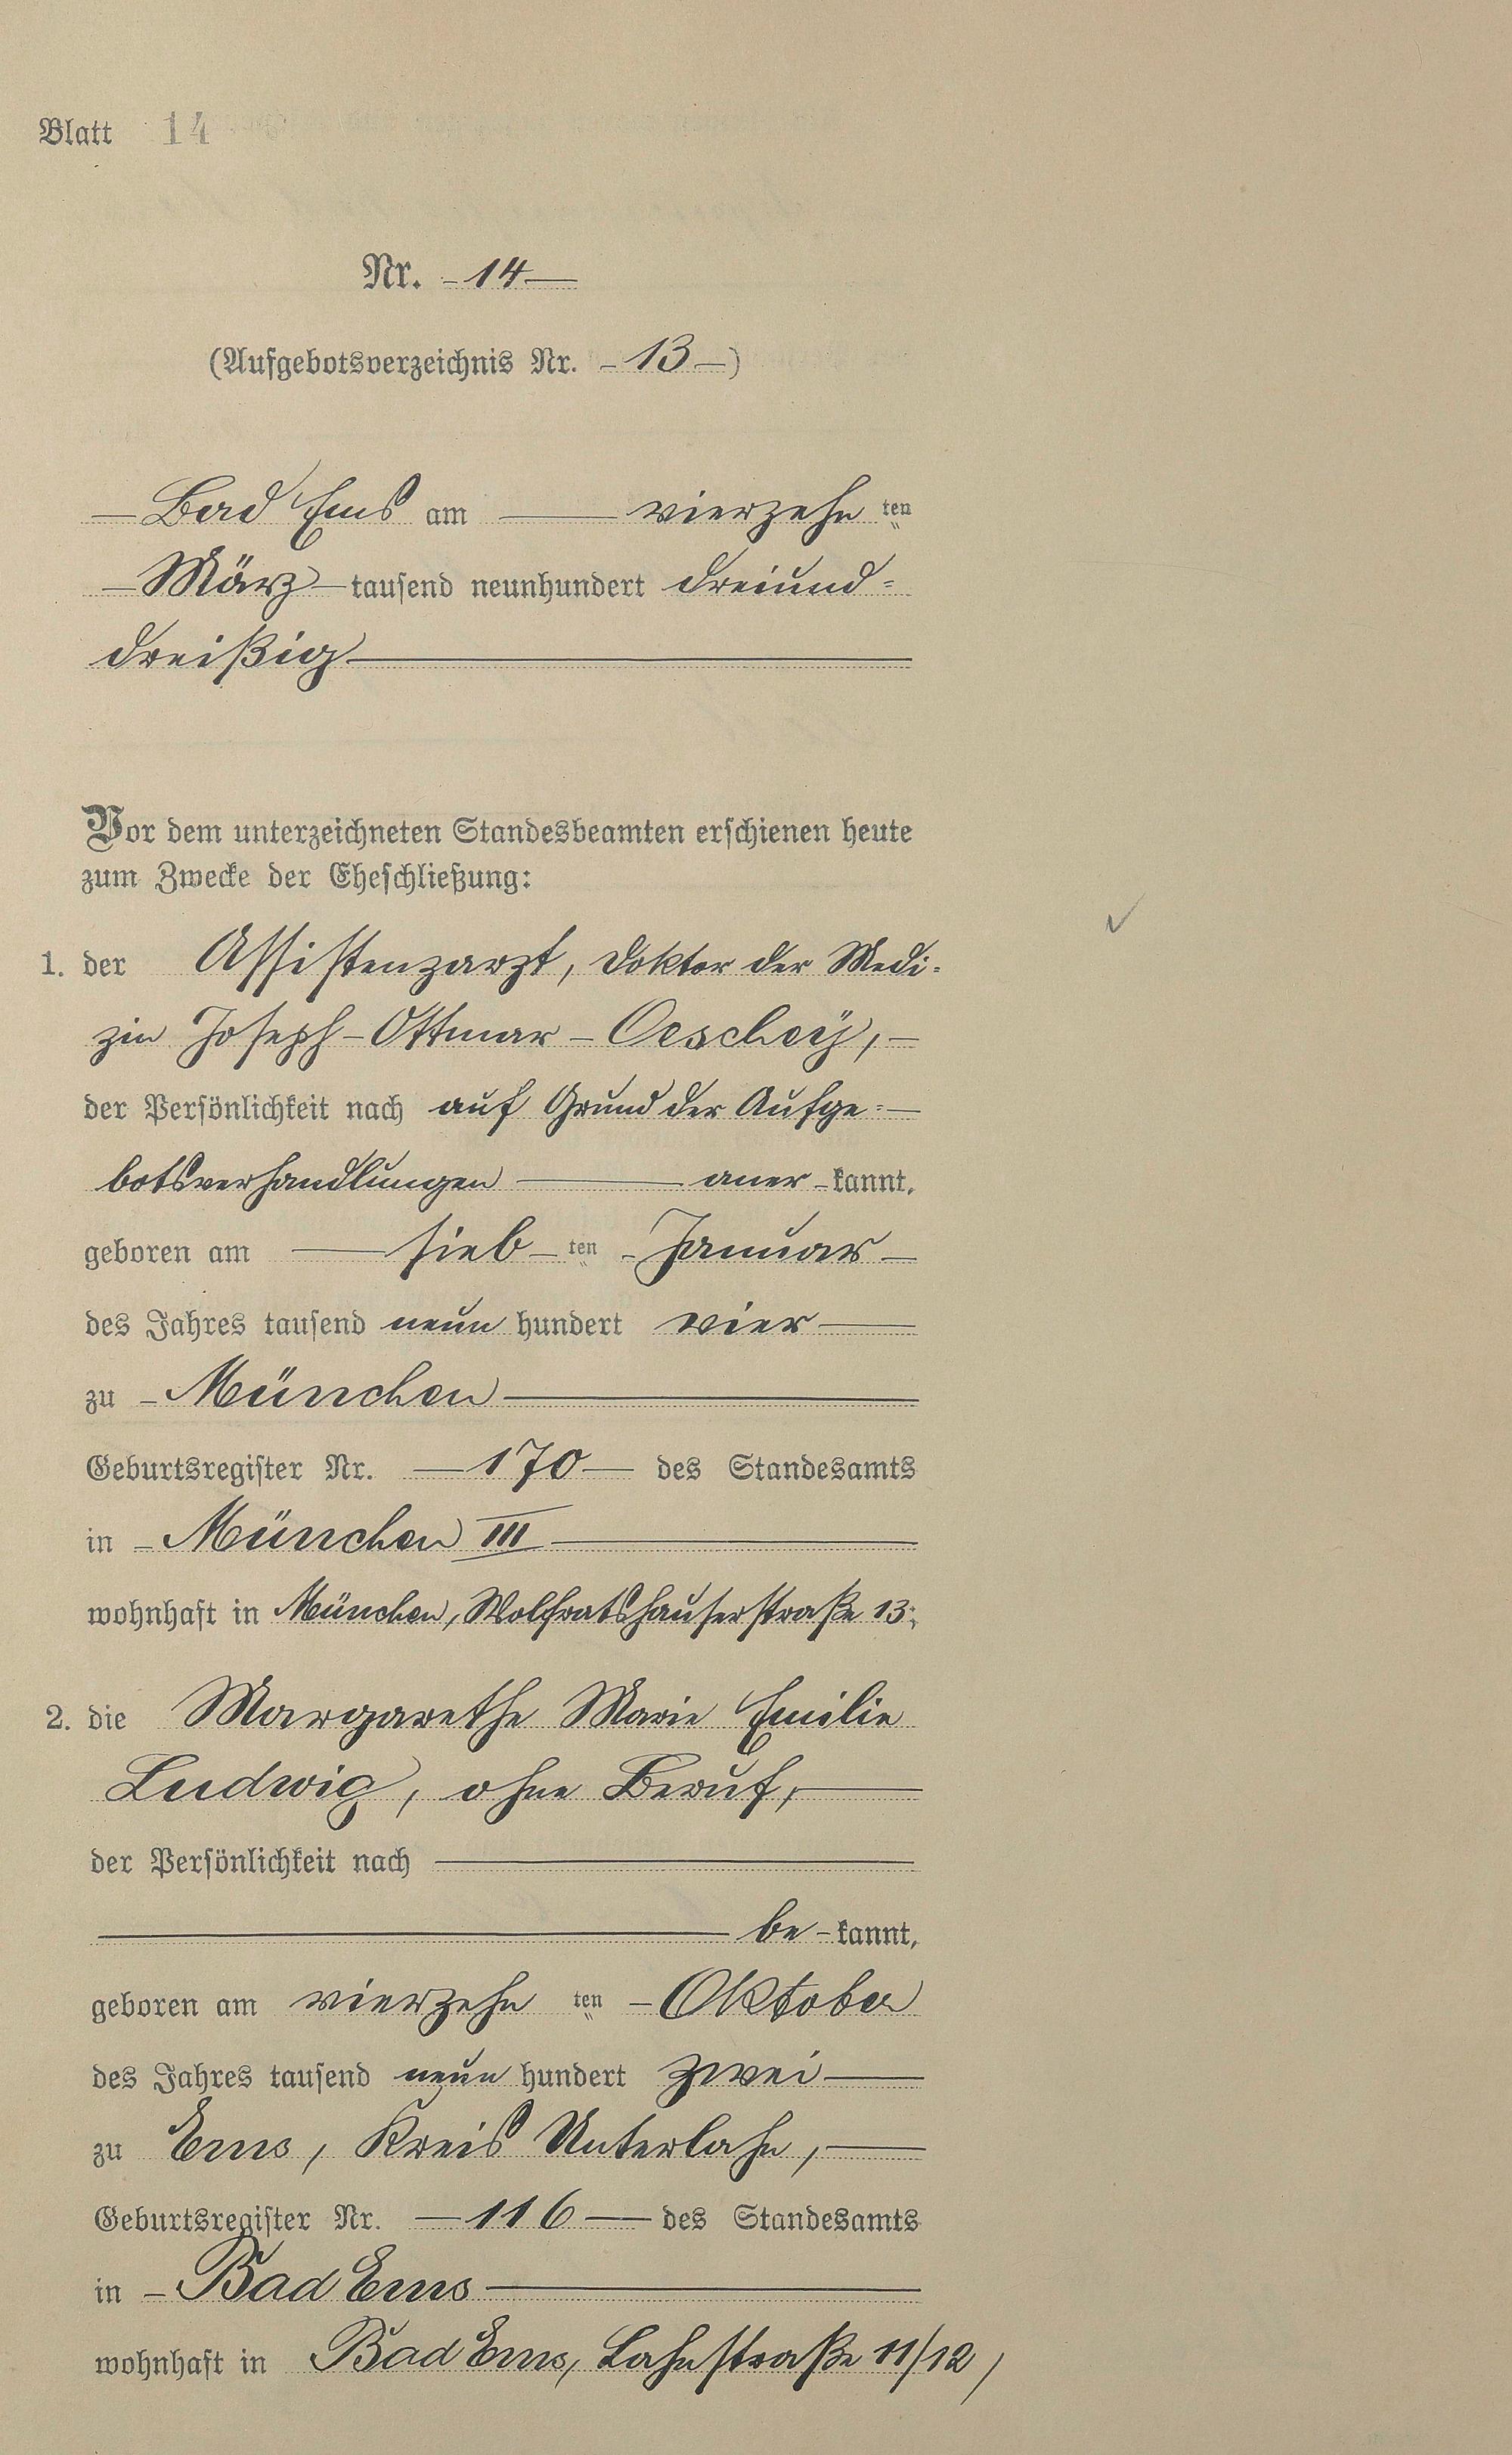 Blatt 14
Nr. - 14 -
(Aufgebotsverzeichnis Nr. - 13 -)
- Bad Ems am - vierzehn ten
- März - tausend neunhundert dreiund=
dreißig -
Vor dem unterzeichneten Standesbeamten erschienen heute
zum Zwecke der Eheschließung:
1. der Assistenzarzt, Doktor der Medi=
zin Joseph - Ottmar - Oeschey, -
der Persönlichkeit nach auf Grund der Aufge= -
botsverhandlungen - aner - kannt,
geboren am - sieb - ten - Januar -
des Jahres tausend neun hundert vier -
zu - München -
Geburtsregister Nr. - 170 - des Standesamts
in - München III -
wohnhaft in München, Wolfratshauserstraße 13;
2. die Margarethe Marie Emilie
Ludwig, ohne Beruf, -
der Persönlichkeit nach -
- be - kannt,
geboren am vierzehn ten - Oktober
des Jahres tausend neun hundert zwei -
zu Ems, Kreis Unterlahn, -
Geburtsregister Nr. - 116 - des Standesamts
in - Bad Ems -
wohnhaft in Bad Ems, Lahnstraße 11/12,